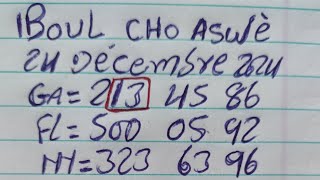 BOUL CHO ASWÈ
24 DÉCEMBRE 2024
GA = 213 45 86
FL = 500 05 92
NY = 323 63 96